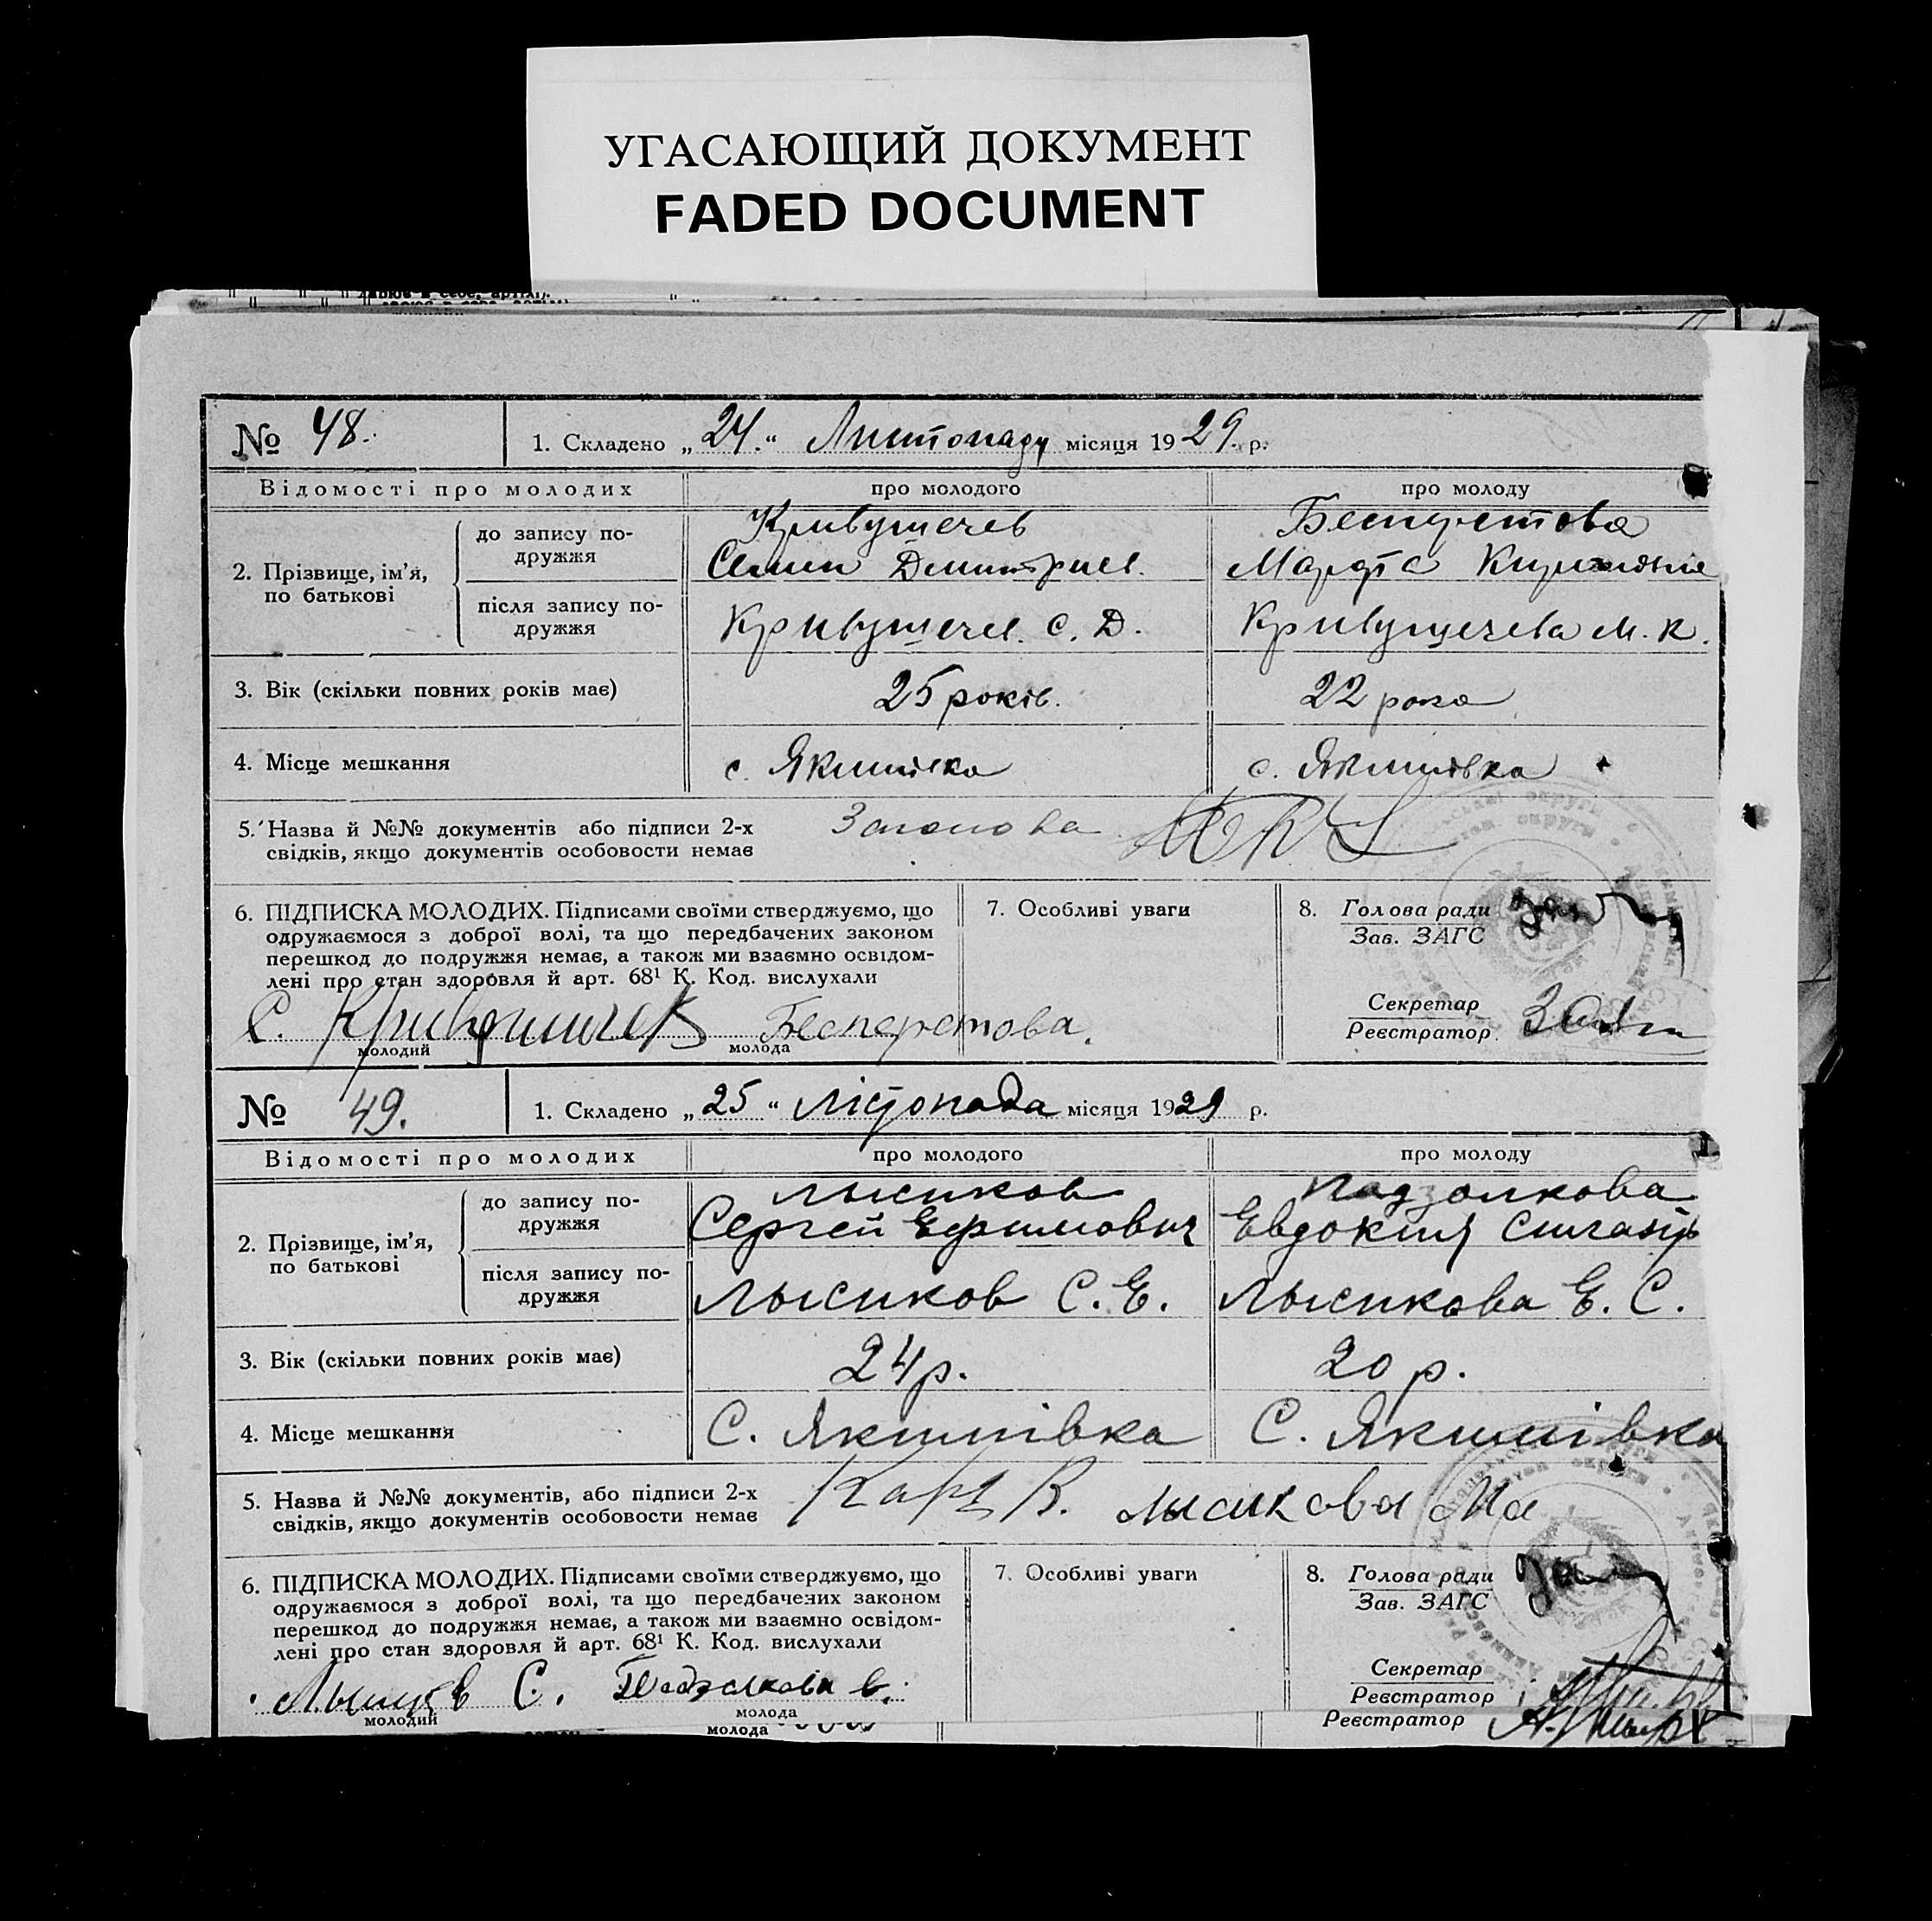 УГАСАЮЩИЙ ДОКУМЕНТ
FADED DOCUMENT
№ 48. 1. Складено „24.“ Листопаду місяця 1929. р.
Відомості про молодих про молодого про молоду
2. Прізвище, ім’я, по батькові
до запису по-
дружжя
Кривушечев
Семен Дмитриев.
Бесперстова
Марфа
після запису по-
дружжя
Кривушечев. С. Д.
Кривущечева М. К.
3. Вік (скільки повних років має) 25 років. 22 рока
4. Місце мешкання с. Якимівка с. Якимівка
5. Назва й №№ документів або підписи 2-х
свідків, якщо документів особовости немає
6. ПІДПИСКА МОЛОДИХ. Підписами своїми стверджуємо, що
одружаємося з доброї волі, та що передбачених законом
перешкод до подружжя немає, а також ми взаємно освідом-
лені про стан здоровля й арт. 68¹ К. Код. вислухали
С. Бесперстова.
молодий молода
7. Особливі уваги
8. Голова ради
Зав. ЗАГС
Секретар
Реєстратор
№ 49. 1. Складено „25“ Лістопада місяця 1929 р.
Відомості про молодих про молодого про молоду
2. Прізвище, ім’я, по батькові
до запису по-
дружжя
Лысиков
Сергей Ефимович
Подзолкова
Евдокия
після запису по-
дружжя
Лысиков С. Е.
Лысикова Е. С.
3. Вік (скільки повних років має) 24 р. 20 р.
4. Місце мешкання С. Якимівка С. Якимівка
5. Назва й №№ документів, або підписи 2-х
свідків, якщо документів особовости немає
Лысикова Ма
6. ПІДПИСКА МОЛОДИХ. Підписами своїми стверджуємо, що
одружаємося з доброї волі, та що передбачених законом
перешкод до подружжя немає, а також ми взаємно освідом-
лені про стан здоровля й арт. 68¹ К. Код. вислухали
С.
молодий молода
7. Особливі уваги
8. Голова ради
Зав. ЗАГС
Секретар
Реєстратор
молода
Реєстратор